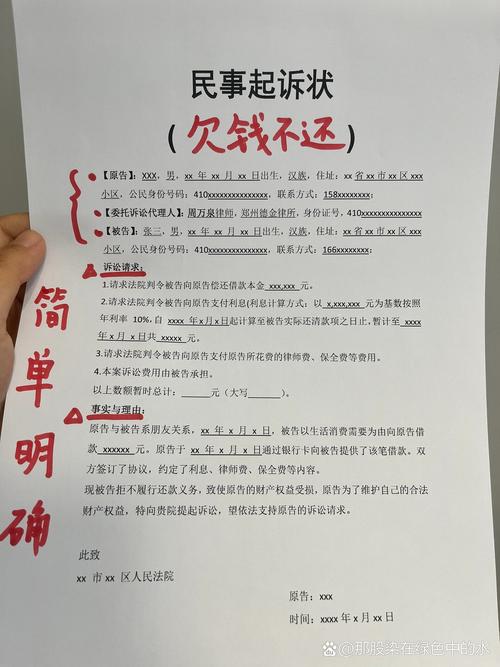 民事起诉状
（欠钱不还）
【原告】：XXX，男，xx 年 xx 月 xx 日出生，汉族，住址：xx 省 xx 市 xx 区 xxx
小区，公民身份号码：410xxxxxxxxxxxxxxx，联系方式：158xxxxxxxx；
【委托诉讼代理人】：周万泉律师，郑州德金律所，身份证号，410xxxxxxxxxxxxxxx
【被告】：张三，男，xx 年 xx 月 xx 日出生，汉族，住址：xx 省 xx 市 xx 区 xxx
小区，公民身份号码：410xxxxxxxxxxxxxxx，联系方式：166xxxxxxxx；
诉讼请求：
1.请求法院判令被告向原告偿还借款本金 xxx,xxx 元。
2.请求法院判令被告向原告支付利息(利息计算方式：以 x,xxx,xxx 元为基数按照
年利率 10%，自 xxxx 年 x 月 x 日起计算至被告实际还清款项之日止，暂计至 xxxx
年 x 月 x 日共 xxxxx 元。
3.请求法院判令被告向原告支付原告所花费的律师费、保全费等费用。
4.本案诉讼费用由被告承担。
以上数额暂时总计：______元（大写______）。
事实与理由：
原告与被告系朋友关系，xx 年 x 月 x 日，被告以生活消费需要为由向原告借
款 xxxxxx 元。原告于 xx 年 x 月 x 日通过银行卡向被告提供了该笔借款。双
方签订了协议，约定了利息、律师费、保全费等内容。
现被告拒不履行还款义务，致使原告的财产权益受损，原告为了维护自己的合法
财产权益，特向贵院提起诉讼，望依法支持原告的诉讼请求。
此致
xx 市 xx 区人民法院
原告：xxx
时间：xxxx 年 x 月 xx 日
简单明确
@那股染在绿色中的水